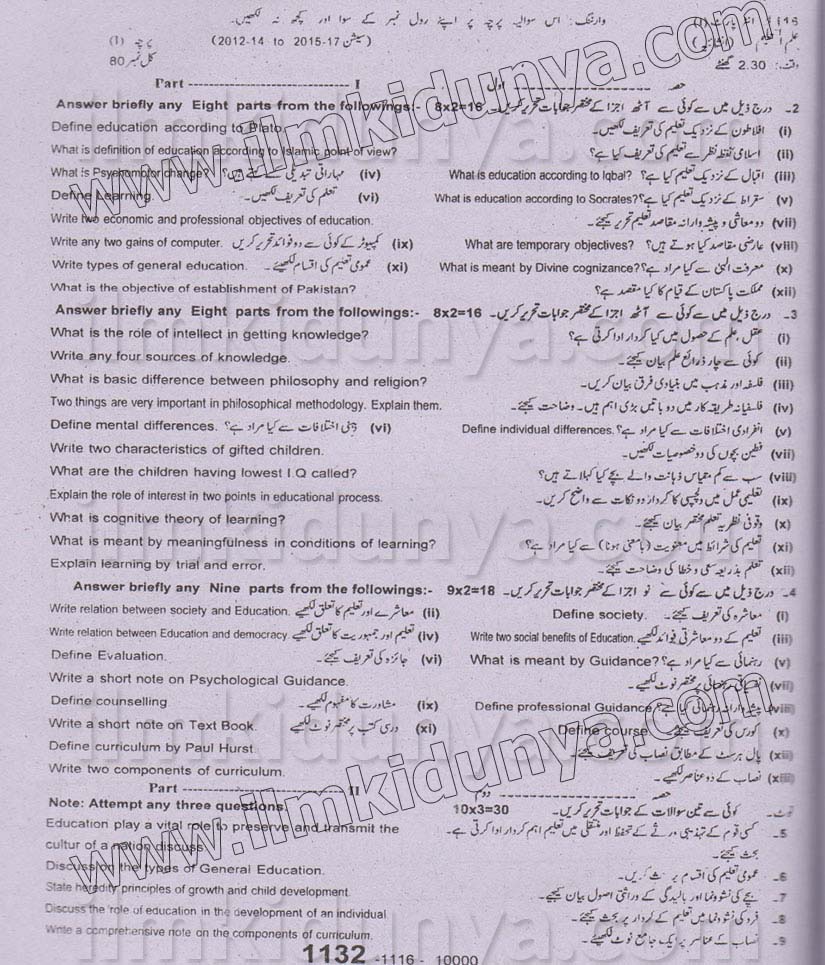 وارننگ: اس سوالیہ پرچہ پر اپنے رول نمبر کے سوا اور کچھ نہ لکھیں۔
1116
پرچہ (I) (سیشن 2015-17 to 2012-14)
وقت: 2.30 گھنٹے کل نمبر 80
Part ---------------------------- I حصہ ---------------------------- اول
Answer briefly any Eight parts from the followings:- 8x2=16 2۔ درج ذیل میں سے کوئی سے آٹھ اجزا کے مختصر جوابات تحریر کریں۔
Define education according to Plato. (i) افلاطون کے نزدیک تعلیم کی تعریف لکھیں۔
What is definition of education according to Islamic point of view? (ii) اسلامی نقطہ نظر سے تعلیم کی تعریف کیا ہے؟
What is Psychomotor change? مہاراتی تبدیلی کسے کہتے ہیں؟ (iv) What is education according to Iqbal? اقبال کے نزدیک تعلیم کیا ہے؟ (iii)
Define Learning. تعلم کی تعریف لکھیں۔ (vi) What is education according to Socrates? سقراط کے نزدیک تعلیم کیا ہے؟ (v)
Write two economic and professional objectives of education. (vii) دو معاشی و پیشہ وارانہ مقاصد تعلیم تحریر کیجئے۔
Write any two gains of computer. کمپیوٹر کے کوئی سے دو فوائد تحریر کریں (ix) What are temporary objectives? عارضی مقاصد کیا ہوتے ہیں؟ (viii)
Write types of general education. عمومی تعلیم کی اقسام لکھیئے۔ (xi) What is meant by Divine cognizance? معرفت الٰہی سے کیا مراد ہے؟ (x)
What is the objective of establishment of Pakistan? (xii) مملکت پاکستان کے قیام کا کیا مقصد ہے؟
Answer briefly any Eight parts from the followings:- 8x2=16 3۔ درج ذیل میں سے کوئی سے آٹھ اجزا کے مختصر جوابات تحریر کریں۔
What is the role of intellect in getting knowledge? (i) عقل، علم کے حصول میں کیا کردار ادا کرتی ہے؟
Write any four sources of knowledge. (ii) کوئی سے چار ذرائع علم بیان کیجئے۔
What is basic difference between philosophy and religion? (iii) فلسفہ اور مذہب میں بنیادی فرق بیان کریں۔
Two things are very important in philosophical methodology. Explain them. (iv) فلسفیانہ طریقہ کار میں دو باتیں بڑی اہم ہیں۔ وضاحت کیجئے۔
Define mental differences. ذہنی اختلافات سے کیا مراد ہے؟ (vi) Define individual differences. انفرادی اختلافات سے کیا مراد ہے؟ (v)
Write two characteristics of gifted children. (vii) فطین بچوں کی دو خصوصیات لکھیں۔
What are the children having lowest I.Q called? (viii) سب سے کم مقیاس ذہانت والے بچے کیا کہلاتے ہیں؟
Explain the role of interest in two points in educational process. (ix) تعلیمی عمل میں دلچسپی کا کردار دو نکات سے واضح کریں۔
What is cognitive theory of learning? (x) وقوفی نظریہ تعلم مختصر بیان کیجئے۔
What is meant by meaningfulness in conditions of learning? (xi) تعلیم کی شرائط میں معنویت (با معنی ہونا) سے کیا مراد ہے؟
Explain learning by trial and error. (xii) تعلم بذریعہ سعی و خطا کی وضاحت کیجئے۔
Answer briefly any Nine parts from the followings:- 9x2=18 4۔ درج ذیل میں سے کوئی سے نو اجزا کے مختصر جوابات تحریر کریں۔
Write relation between society and Education. معاشرے اور تعلیم کا تعلق لکھیے (ii) Define society. معاشرہ کی تعریف کیجئے۔ (i)
Write relation between Education and democracy. تعلیم اور جمہوریت کا تعلق لکھیے (iv) Write two social benefits of Education. تعلیم کے دو معاشرتی فوائد لکھیے (iii)
Define Evaluation. جائزہ کی تعریف کیجئے۔ (vi) What is meant by Guidance? رہنمائی سے کیا مراد ہے؟ (v)
Write a short note on Psychological Guidance. (vii) نفسیاتی رہنمائی پر مختصر نوٹ لکھیے۔
Define counselling مشاورت کا مفہوم لکھیے۔ (ix) Define professional Guidance پیشہ وارانہ رہنمائی کیا ہے؟ (viii)
Write a short note on Text Book. درسی کتب پر مختصر نوٹ لکھیے (xi) Define course. کورس کی تعریف کیجئے۔ (x)
Define curriculum by Paul Hurst. (xii) پال ہرسٹ کے مطابق نصاب کی تعریف کیجئے۔
Write two components of curriculum. (xiii) نصاب کے دو عناصر لکھیے۔
Part ---------------------------- II حصہ ---------------------------- دوم
Note: Attempt any three questions. 10x3=30 نوٹ۔ کوئی سے تین سوالات کے جوابات تحریر کریں۔
Education play a vital role to preserve and transmit the 5۔ کسی قوم کے تہذیبی ورثے کے تحفظ اور منتقلی میں تعلیم اہم کردار ادا کرتی ہے۔
cultur of a nation discuss. بحث کیجئے۔
Discuss on the types of General Education. 6۔ عمومی تعلیم کی اقسام پر بحث کریں۔
State heredity principles of growth and child development. 7۔ بچے کی نشوونما اور بالیدگی کے وراثتی اصول بیان کیجئے۔
Discuss the role of education in the development of an individual. 8۔ فرد کی نشوونما میں تعلیم کے کردار پر بحث کیجئے۔
Write a comprehensive note on the components of curriculum. 9۔ نصاب کے عناصر پر ایک جامع نوٹ لکھیئے۔
1132 -1116 - 10000
www.ilmkidunya.com
www.ilmkidunya.com
ilmkidunya.com
ilmkidunya.com
ilmkidunya.com
ilmkidunya.com
ilmkidunya.com